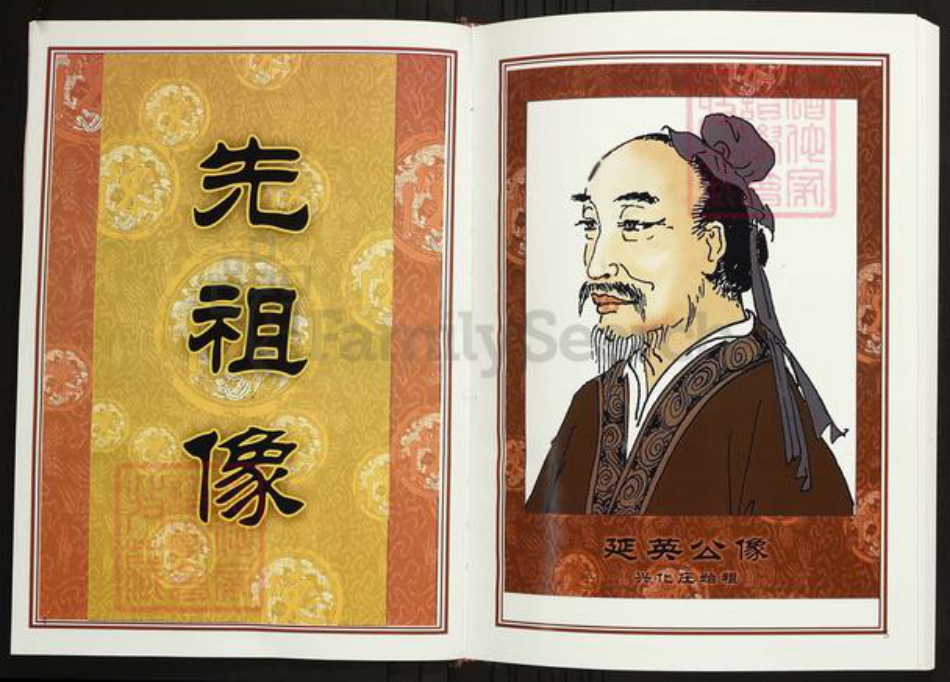 先祖像
FamilySearch
延英公像
兴化庄始祖